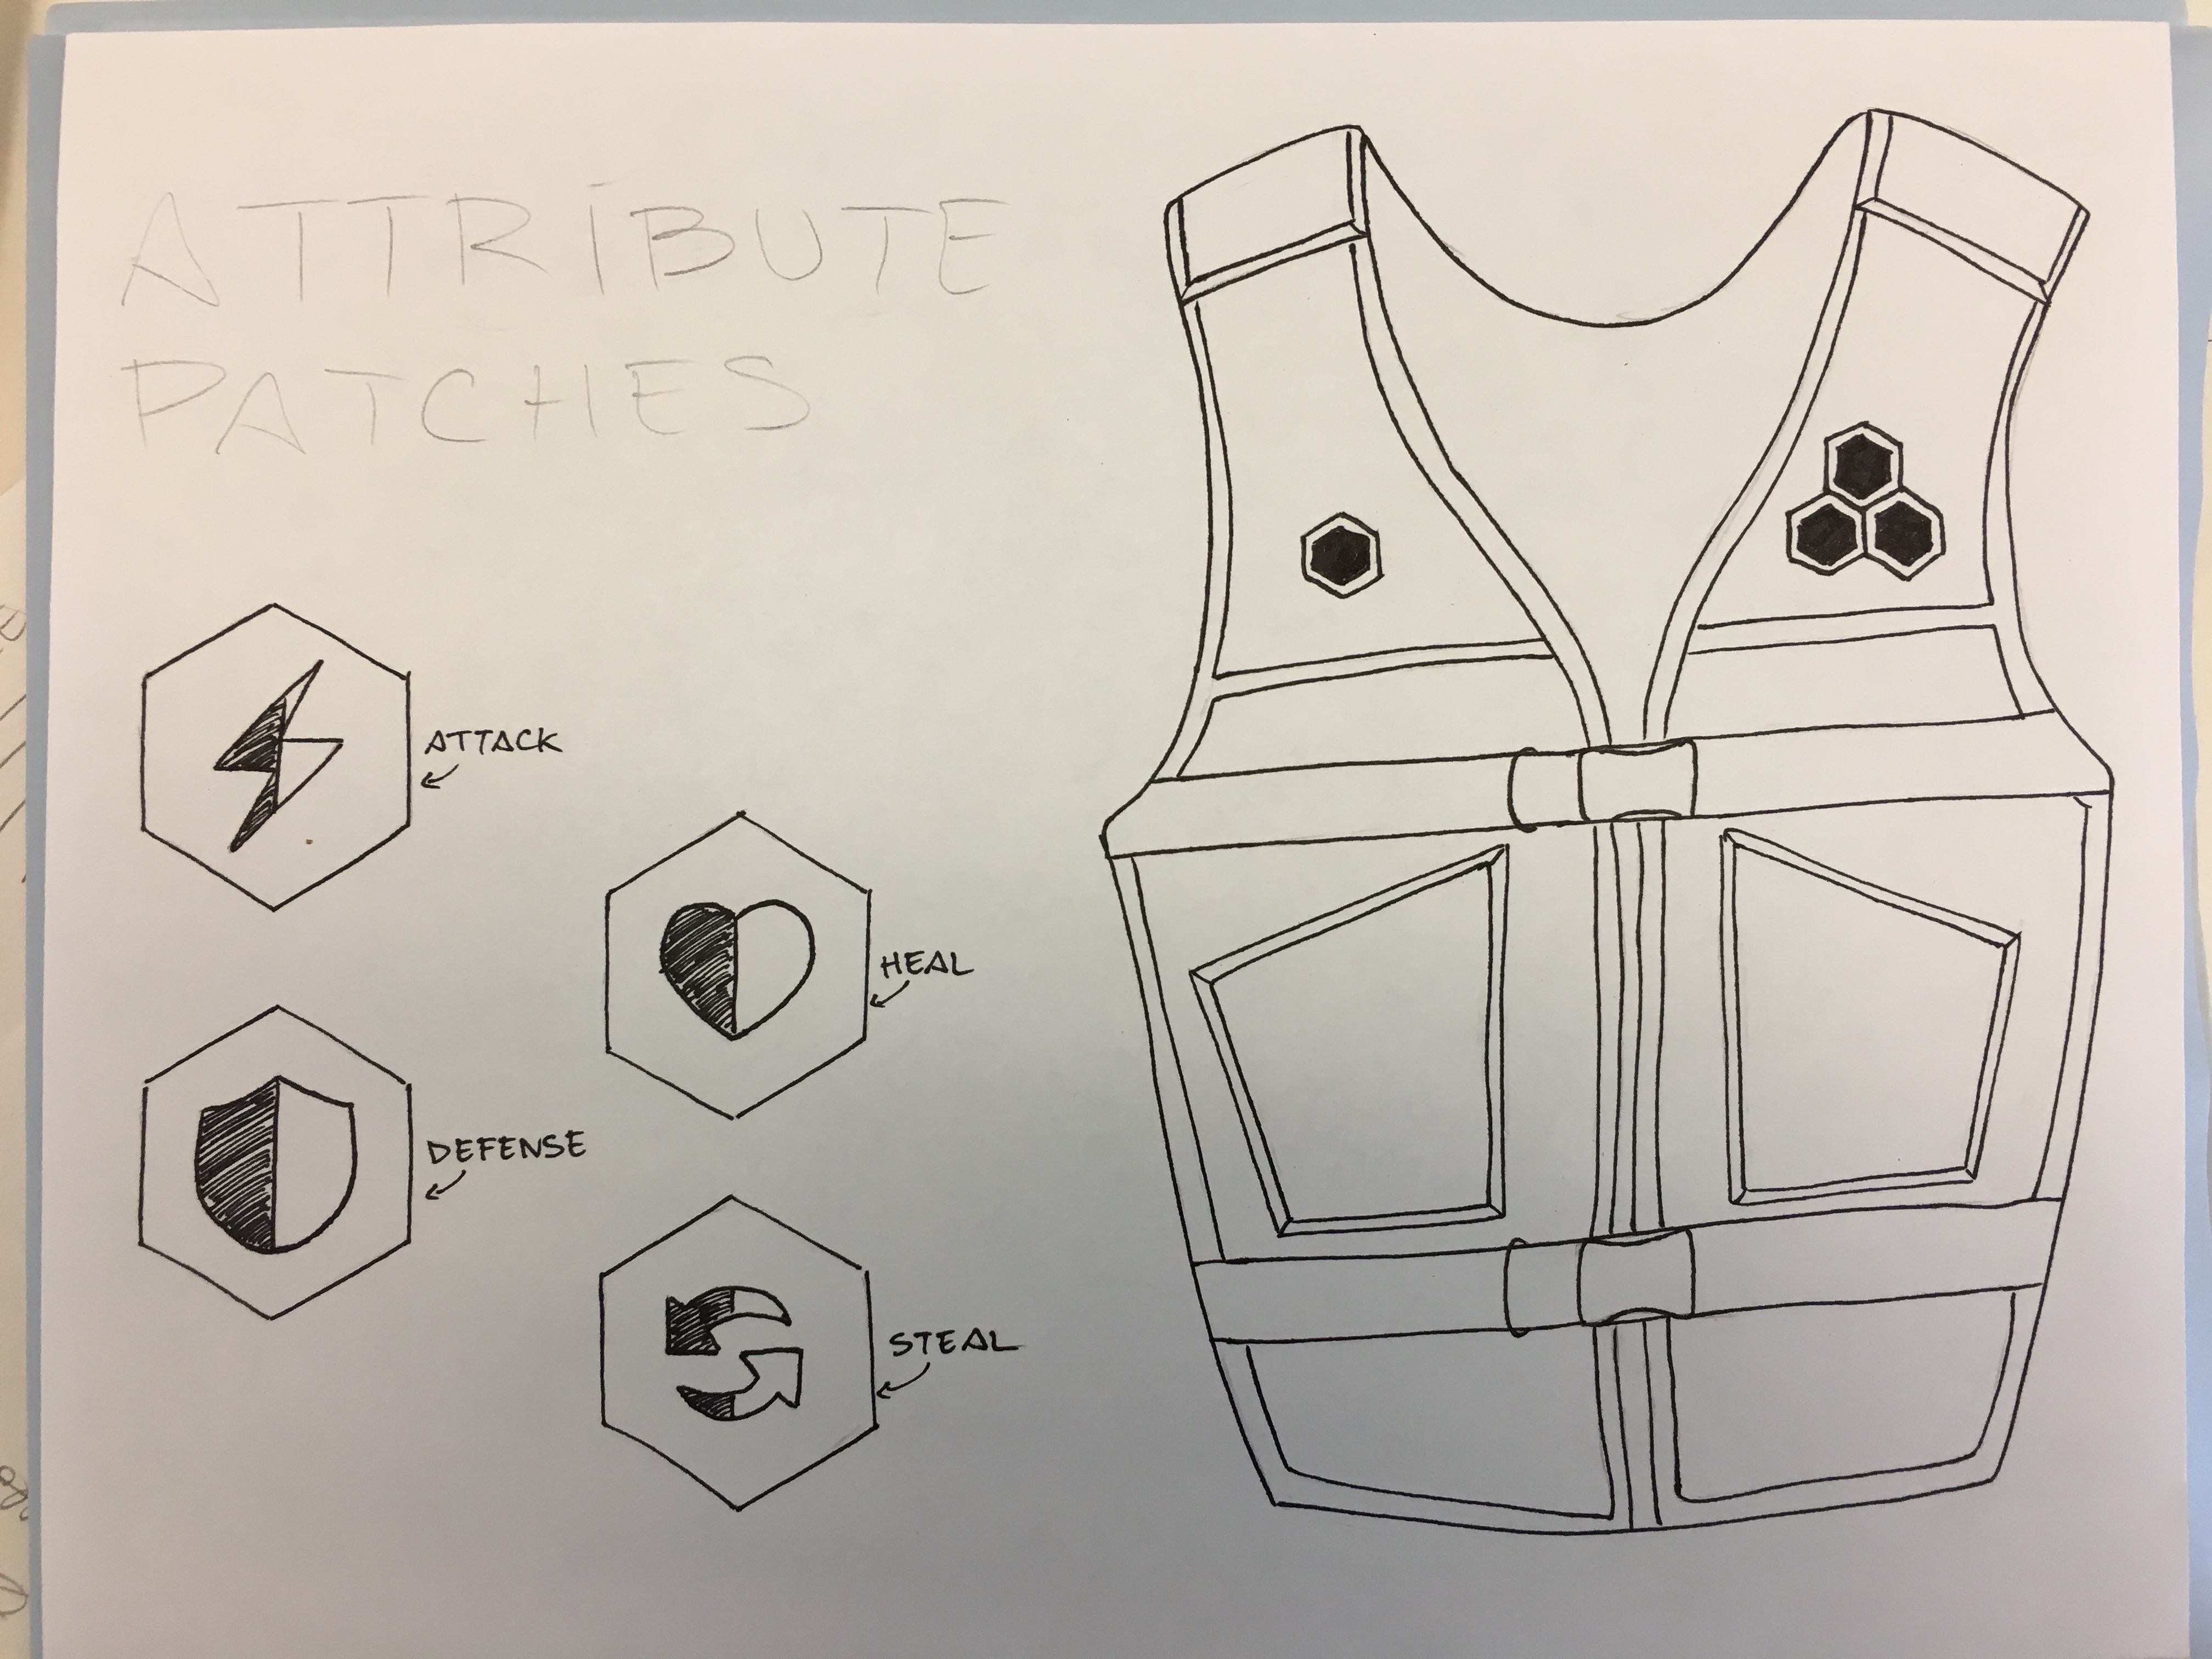 ATTRIBUTE
PATCHES
ATTACK
HEAL
DEFENSE
STEAL